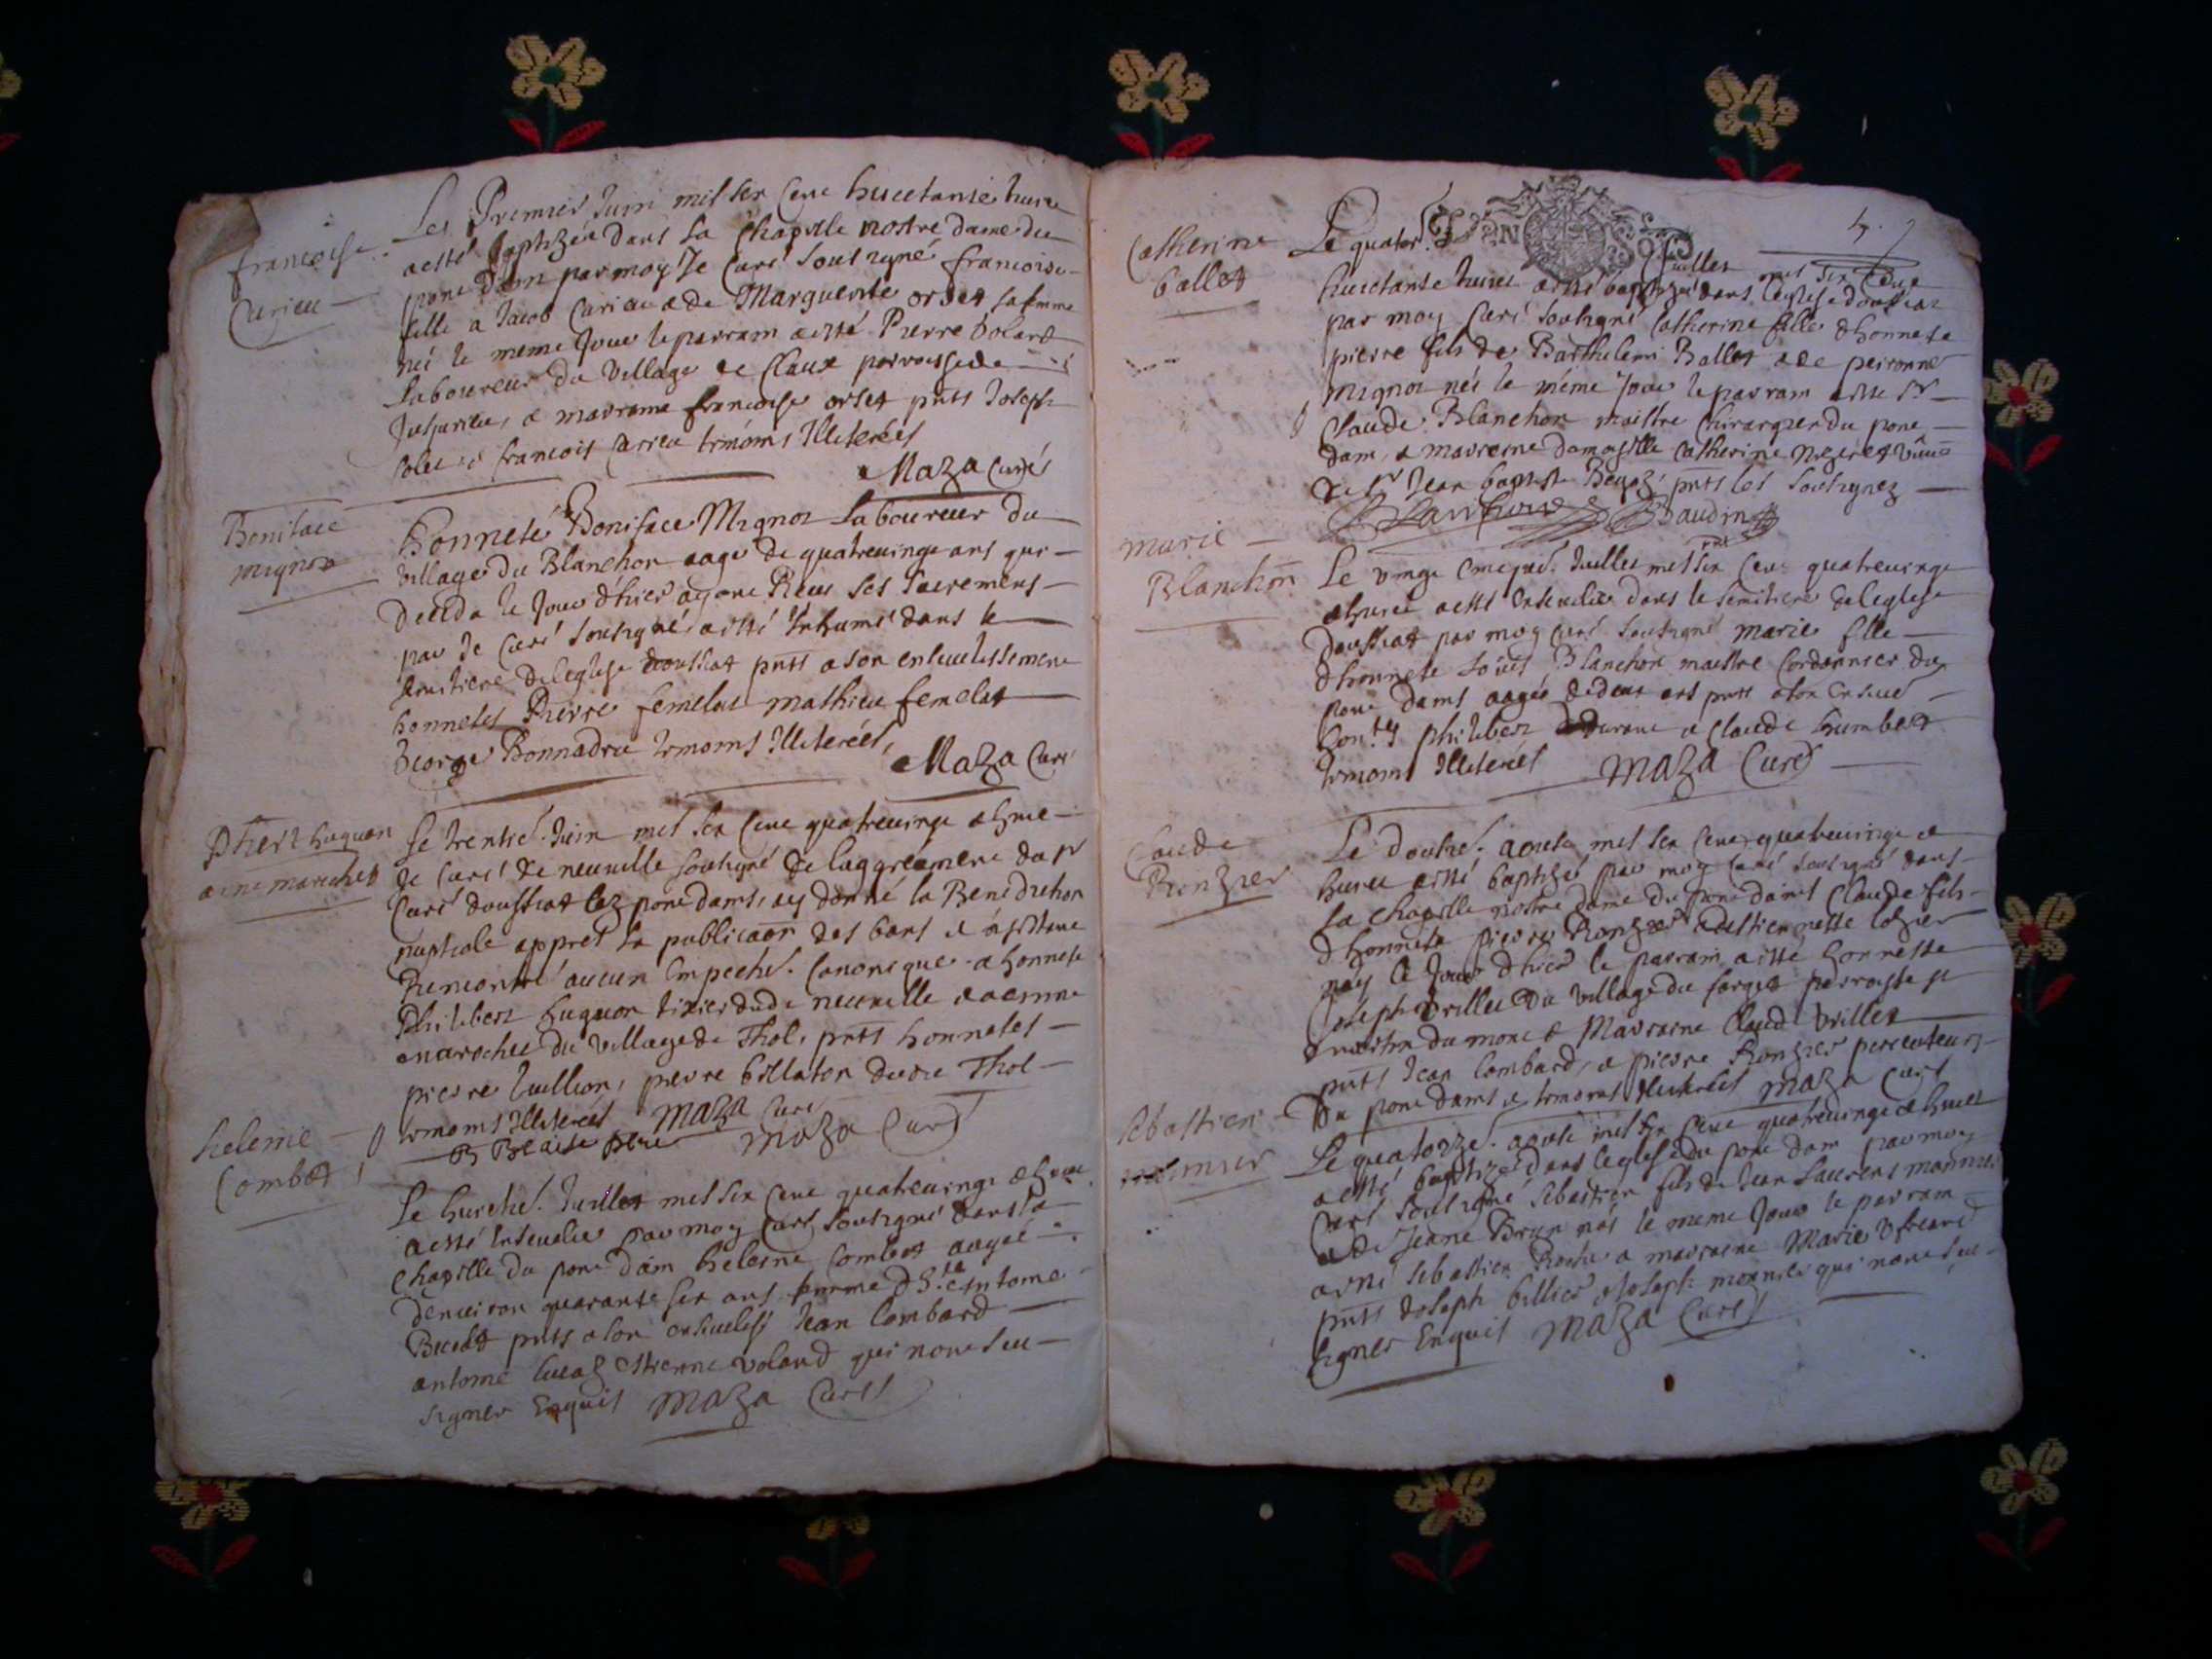 francoise
Curieu
Les Premier Juin mil six Cent huictante huict
a esté baptizée dans la Chapelle nostre dame du
pont dain par moy Je Curé soubsigné francoise
fille a Jacob Curieu & de Marguerite orset sa femme
née le meme Jour le parrain a esté Pierre Volard
laboureur du Village de Claux parroisse de
Jujurieu, & marraine francoise orset pnts Joseph
francois Curieu temoins Illiterés
Maza Curé
Boniface
mignon
Honneste Boniface Mignot laboureur du
village du Blanchon aagé de quatre vingt ans
deceda le Jour d'hier ayant Receu ses sacremens
par Je Curé soubsigné a esté Inhumé dans le
semitiere de leglise doussiat pnts a son enseuelissement
honnestes Pierre femelat mathieu femelat
George Bonnadru temoins Illiterés,
Maza Curé
Phert huguon
anne marechet
Le trentie. Juin mil six Cent quatre vingt & huict
Je Curé de neuuille soubsigné de laggréement du sr
Curé doussiat lez pont dains, ay donné la Benediction
nuptiale appres la publicaon des bans et n'ayant
Rencontré aucun Empeche. Canonique a honneste
Philibert huguon tixier dud. neuuille & a anne
marechet du village de Thol, pnts honnestes
pierre Vuillion, pierre billaton dudit Thol
temoins Illiterés Maza Curé
Maza Curé
helenie
Combet
Le huictie. Juillet mil six Cent quatre vingt & huict
a esté Enseuelie par moy Curé soubsigné dans la
Chapelle du pont dain heleine Combet aagée
denuiron quarante six ans femme d'h.te antoine
pnts a son enseueliss Jean Lombard
antoine lucaz Estienne Volard qui nont sceu
signer Enquis Maza Curé
Catherine
ballet
Le quator.
Juillet mil six Cent
huictante huict a esté baptizée dans leglise doussiat
par moy Curé soubsigné Catherine fille d'honneste
pierre fils de Barthelemi Ballet & de peironne
mignot née le méme Jour le parrain a esté Sr
Claude Blanchon maistre Chirurgien du pont
dain, & marreine damoyselle Catherine
de Sr Jean baptiste pnts les soubsignez
Baudin
marie
Blanchon
Le vingt Cinquie. Juillet mil six Cent quatre vingt
& huict a esté Enseuelie dans le semitiere de leglise
doussiat par moy Curé soubsigné marie fille
d'honneste Louis Blanchon maistre Cordonnier du
pont dains aagée de deux ans pnts a son Enseue
hon.tes philibert durant & Claude humbert
temoins Illiterés Maza Curé
Claude
Ronzier
Le douzie. aoust mil six Cent quatre vingt et
huict a esté baptizé par moy Curé soubsigné dans
la Chapelle nostre dame du pont dains Claude fils
d'honneste pierre Ronzier & d'estiennette
nay le Jour d'hier le parrain a esté honneste
Joseph Vrillet du village du farget parroisse st
martin du mont & Marraine Claud. Vrillet
pnts Jean Lombard, & pierre Ronzier
du pont dains & temoins Illiterés Maza Curé
sebastien
monnier
Le quatorzie. aoust mil six Cent quatre vingt & huict
a esté baptizé dans leglise du pont dain par moy
Curé soubsigné sebastien fils de Jean Laurent monnier
& de Jeane Brun né le meme Jour le parrain
a esté sebastien & marraine Marie
pnts Joseph billier & Joseph monnier qui nont sceu
signer Enquis Maza Curé